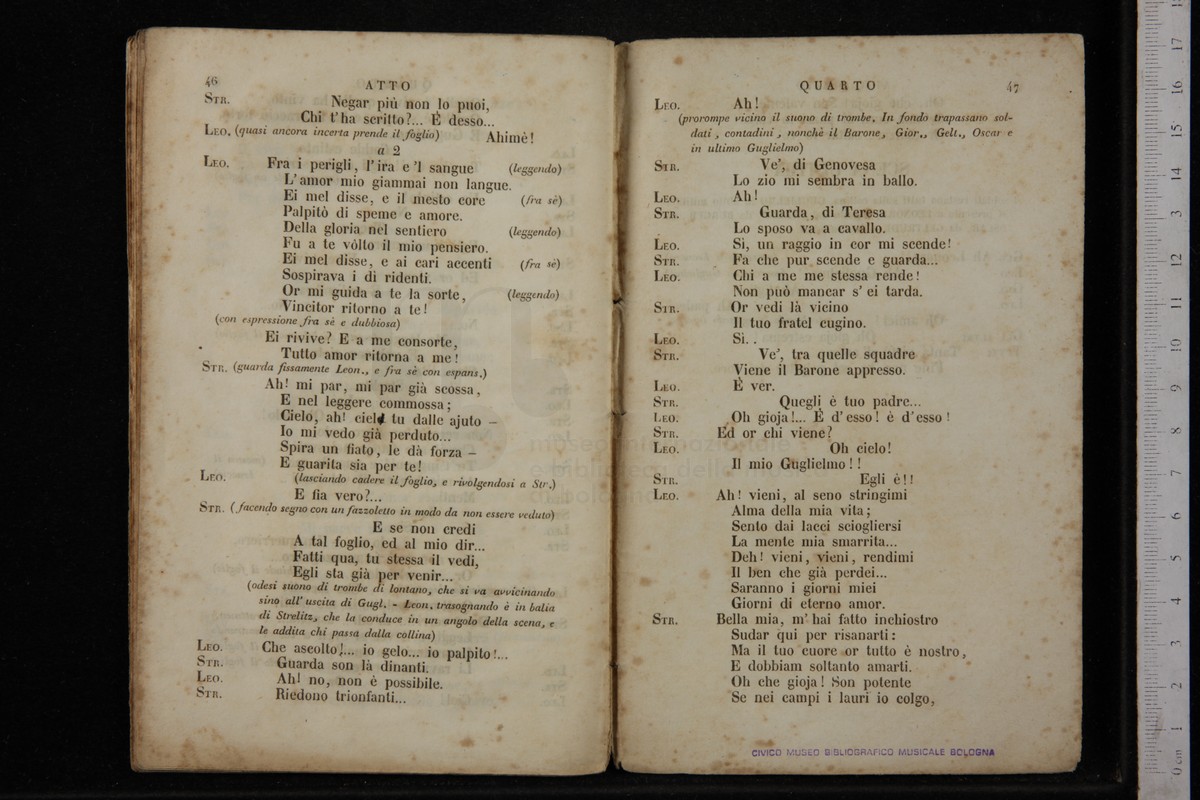 46
ATTO
STR. Negar più non lo puoi,
Chi t'ha scritto?... È desso...
LEO. (quasi ancora incerta prende il foglio) Ahimè!
a 2
LEO. Fra i perigli, l'ira e 'l sangue (leggendo)
L'amor mio giammai non langue.
Ei mel disse, e il mesto core (fra sè)
Palpitò di speme e amore.
Della gloria nel sentiero (leggendo)
Fu a te vòlto il mio pensiero.
Ei mel disse, e ai cari accenti (fra sè)
Sospirava i dì ridenti.
Or mi guida a te la sorte, (leggendo)
Vincitor ritorno a te!
(con espressione fra sè e dubbiosa)
Ei rivive? E a me consorte,
Tutto amor ritorna a me!
STR. (guarda fissamente Leon., e fra sè con espans.)
Ah! mi par, mi par già scossa,
E nel leggere commossa;
Cielo, ah! cielo tu dalle ajuto -
Io mi vedo già perduto...
Spira un fiato, le dà forza -
E guarita sia per te!
LEO. (lasciando cadere il foglio, e rivolgendosi a Str.)
E fia vero?...
STR. (facendo segno con un fazzoletto in modo da non essere veduto)
E se non credi
A tal foglio, ed al mio dir...
Fatti qua, tu stessa il vedi,
Egli sta già per venir...
(odesi suono di trombe di lontano, che si va avvicinando
sino all' uscita di Gugl. - Leon. trasognando è in balia
di Strelitz, che la conduce in un angolo della scena, e
le addita chi passa dalla collina)
LEO. Che ascolto!... io gelo... io palpito!...
STR. Guarda son là dinanti.
LEO. Ah! no, non è possibile.
STR. Riedono trionfanti...
QUARTO
47
LEO. Ah!
(prorompe vicino il suono di trombe. In fondo trapassano sol-
dati, contadini, nonchè il Barone, Gior., Gelt., Oscar e
in ultimo Guglielmo)
STR. Ve', di Genovesa
Lo zio mi sembra in ballo.
LEO. Ah!
STR. Guarda, di Teresa
Lo sposo va a cavallo.
LEO. Sì, un raggio in cor mi scende!
STR. Fa che pur scende e guarda...
LEO. Chi a me me stessa rende!
Non può mancar s' ei tarda.
STR. Or vedi là vicino
Il tuo fratel cugino.
LEO. Sì..
STR. Ve', tra quelle squadre
Viene il Barone appresso.
LEO. È ver.
STR. Quegli è tuo padre...
LEO. Oh gioja!... È d'esso! è d'esso!
STR. Ed or chi viene?
LEO. Oh cielo!
Il mio Guglielmo!!
STR. Egli è!!
LEO. Ah! vieni, al seno stringimi
Alma della mia vita;
Sento dai lacci sciogliersi
La mente mia smarrita...
Deh! vieni, vieni, rendimi
Il ben che già perdei...
Saranno i giorni miei
Giorni di eterno amor.
STR. Bella mia, m' hai fatto inchiostro
Sudar qui per risanarti:
Ma il tuo cuore or tutto è nostro,
E dobbiam soltanto amarti.
Oh che gioja! Son potente
Se nei campi i lauri io colgo,
CIVICO MUSEO BIBLIOGRAFICO MUSICALE BOLOGNA